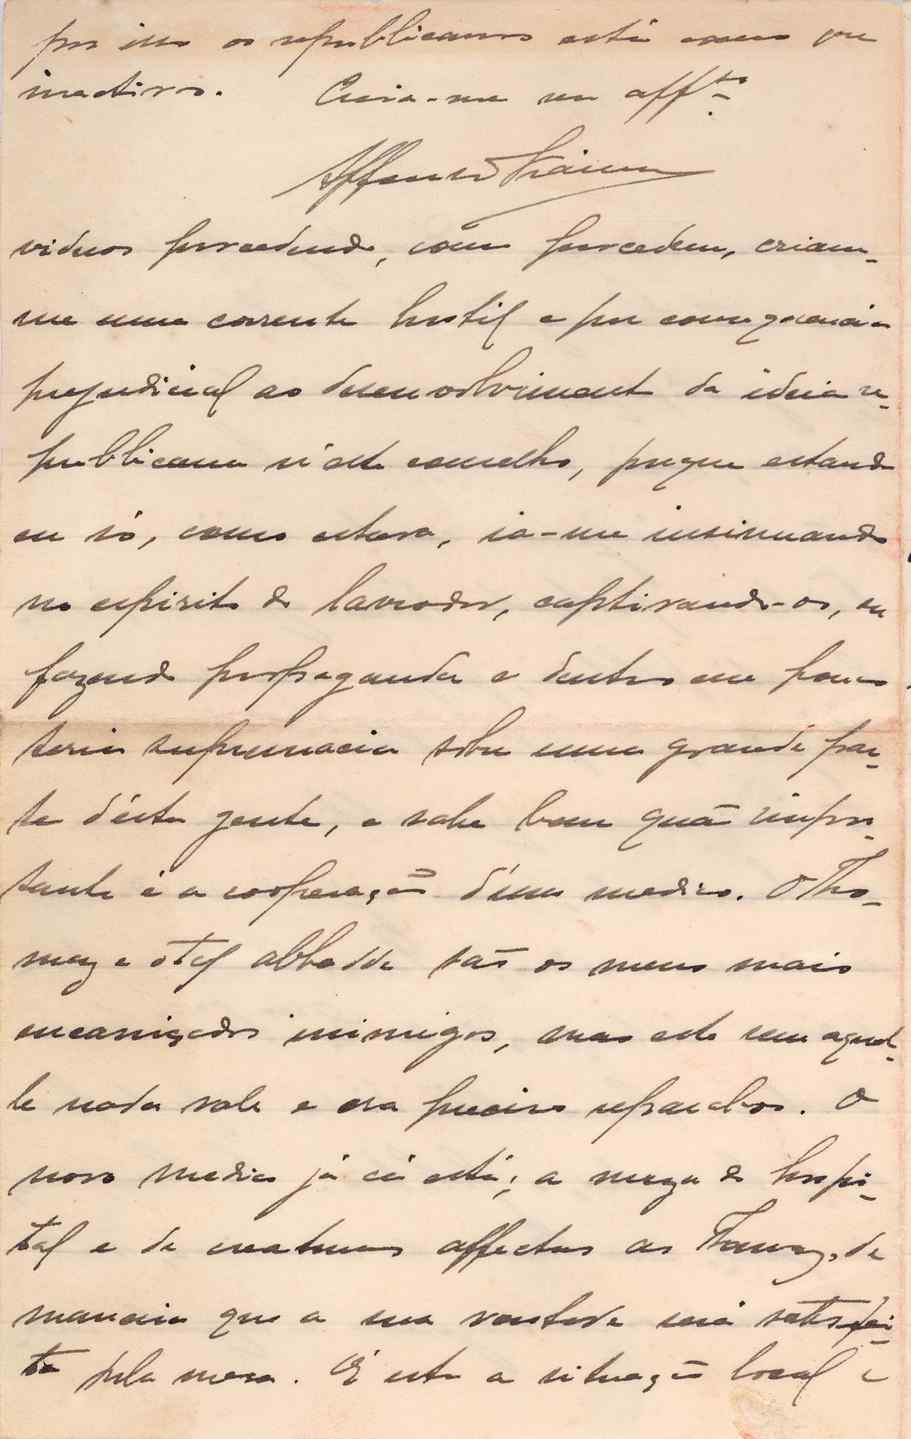 por isso os republicanos está como que
inactivos. Creia-me seu aff.to
Affonso Vianna
viduos procedendo, como procedem, criam-
me uma corrente hostil e por consequencia
prejudicial ao desenvolviment da ideia re-
publicana n'este concelho, porque estando
eu só, como estava, ia-me insinuando
no espirito do lavrador, captivando-os, eu
fazendo propaganda e dentro em pouco
teria supremacia sobre uma grande par-
te d'esta gente, e sabe bem quão impor-
tante é a cooperação d'um medico. O Tho-
maz e o tal abbade são os meus mais
encarniçados inimigos, mas este sem aquel-
le nada vale e era preciso separal-os. O
novo medico já cá está; a meza do hospi-
tal e de creaturas affectas ao Thomaz, de
maneira que a sua vontade será satisfei-
ta pela mesa. É esta a situação local e